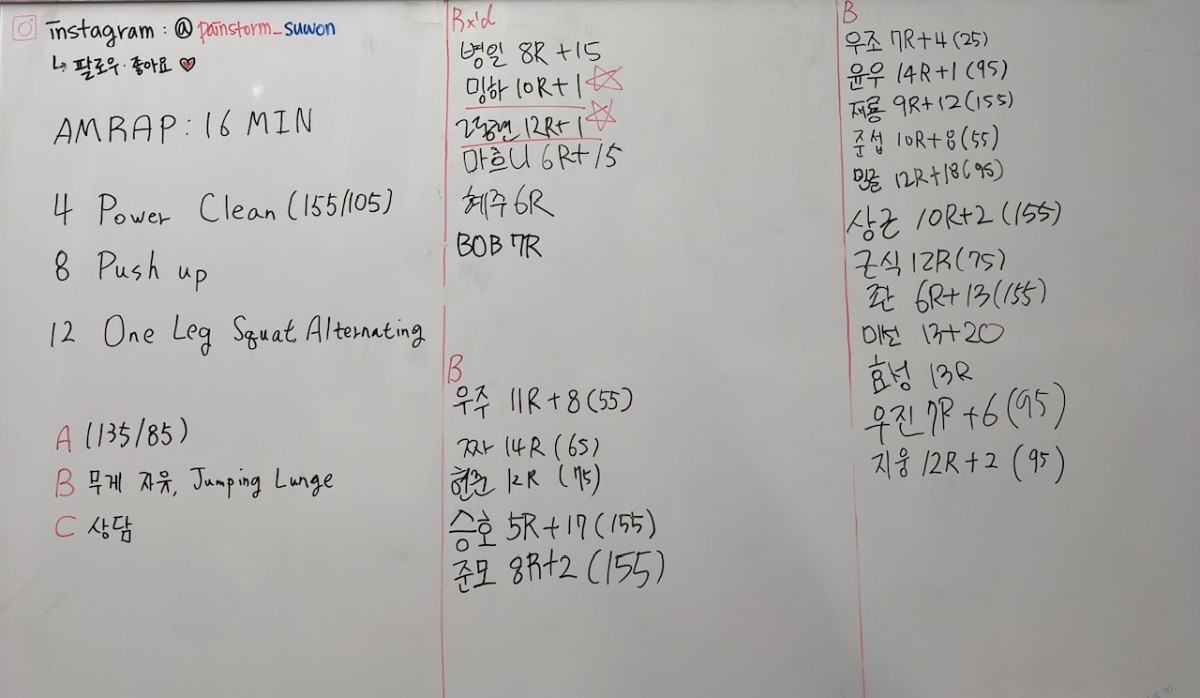 instagram : @painstorm_suwon
↳ 팔로우·좋아요 ♥
AMRAP : 16 MIN
4 Power Clean (155/105)
8 Push up
12 One Leg Squat Alternating
A (135/85)
B 무게 자유, Jumping Lunge
C 상담
Rx'd
병일 8R+15
밍하 10R+1 ☆
12R+1 ☆
마흐니 6R+15
혜주 6R
BOB 7R
B
우주 11R+8 (55)
짜 14R (65)
현준 12R (75)
승호 5R+17 (155)
준모 8R+2 (155)
B
우조 7R+4 (25)
윤우 14R+1 (95)
재룡 9R+12 (155)
준섭 10R+8 (55)
12R+18 (95)
상근 10R+2 (155)
군식 12R (75)
6R+13 (155)
미선 13+20
효성 13R
우진 7R+6 (95)
지웅 12R+2 (95)